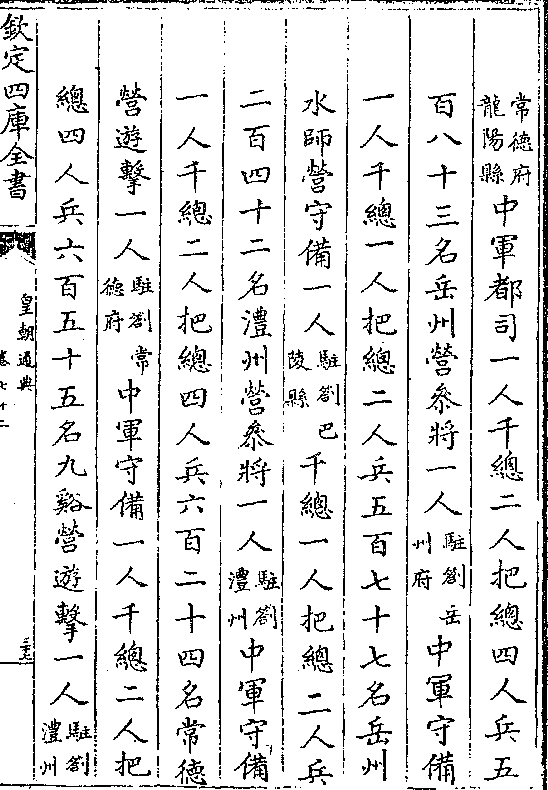 常德府龍陽縣中軍都司一人千總二人把總四人兵五
百八十三名岳州營叅將一人駐劄岳州府中軍守備
一人千總一人把總二人兵五百七十七名岳州
水師營守備一人駐劄巴陵縣千總一人把總二人兵
二百四十二名澧州營叅將一人駐劄澧州中軍守備
一人千總二人把總四人兵六百二十四名常德
營遊擊一人駐劄常德府中軍守備一人千總二人把
總四人兵六百五十五名九谿營遊擊一人駐劄澧州
欽定四庫全書
皇朝通典
卷七十二